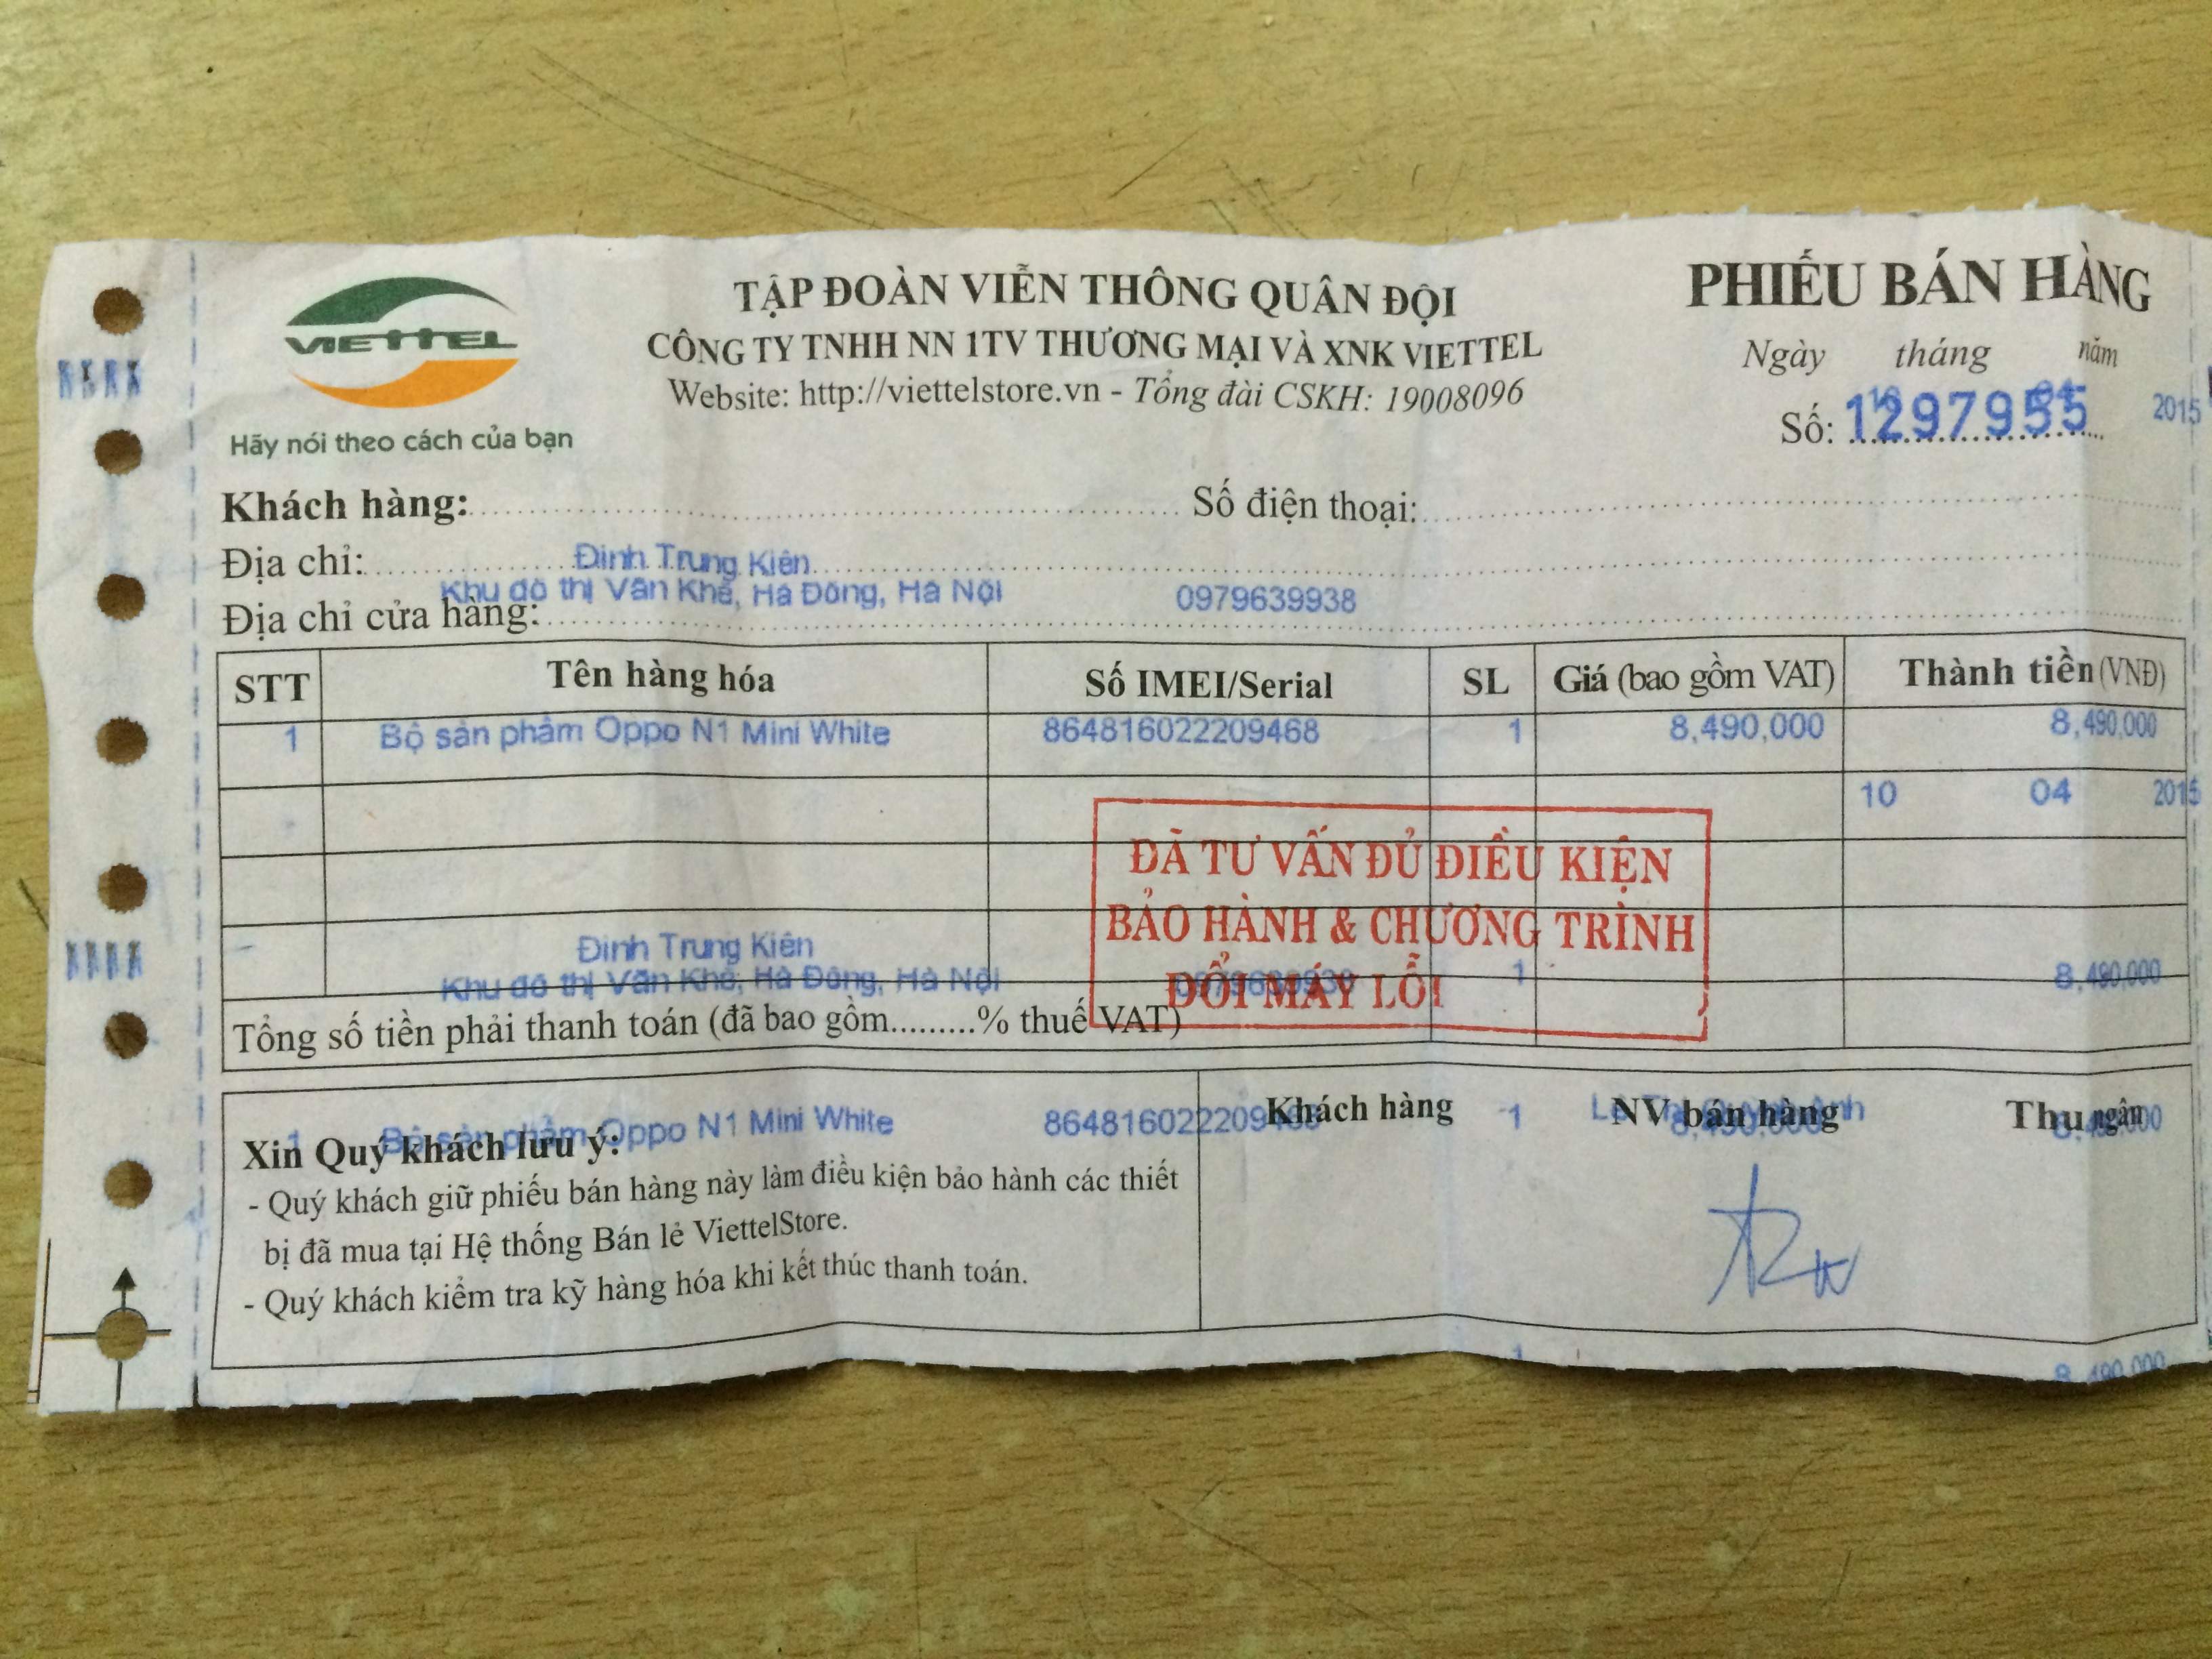 VIETTEL
Hãy nói theo cách của bạn
TẬP ĐOÀN VIỄN THÔNG QUÂN ĐỘI
CÔNG TY TNHH NN 1TV THƯƠNG MẠI VÀ XNK VIETTEL
Website: http://viettelstore.vn - Tổng đài CSKH: 19008096
PHIẾU BÁN HÀNG
Ngày tháng năm
10 04 2015
Số: 1297955
Khách hàng: Số điện thoại:
Địa chỉ: Đinh Trung Kiên
Khu đô thị Văn Khê, Hà Đông, Hà Nội 0979639938
Địa chỉ cửa hàng:
STT Tên hàng hóa Số IMEI/Serial SL Giá (bao gồm VAT) Thành tiền (VNĐ)
1 Bộ sản phẩm Oppo N1 Mini White 864816022209468 1 8,490,000 8,490,000
10 04 2015
ĐÃ TƯ VẤN ĐỦ ĐIỀU KIỆN
BẢO HÀNH & CHƯƠNG TRÌNH
ĐỔI MÁY LỖI
Đinh Trung Kiên
Khu đô thị Văn Khê, Hà Đông, Hà Nội 0979639938 1 8,490,000
Tổng số tiền phải thanh toán (đã bao gồm.........% thuế VAT)
1 Bộ sản phẩm Oppo N1 Mini White 864816022209468 1 8,490,000 8,490,000
Khách hàng NV bán hàng Thu ngân
Xin Quý khách lưu ý:
- Quý khách giữ phiếu bán hàng này làm điều kiện bảo hành các thiết
bị đã mua tại Hệ thống Bán lẻ ViettelStore.
- Quý khách kiểm tra kỹ hàng hóa khi kết thúc thanh toán.
1 8,490,000